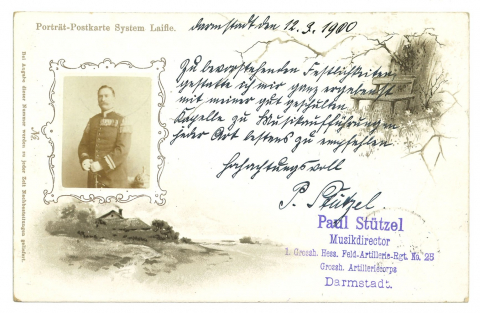 Porträt-Postkarte System Laifle.
Darmstadt den 12.3.1900
Zu bevorstehenden Festlichkeiten
gestatte ich mir ganz ergebenst
mit meiner gut geschulten
Kapelle zu Musikaufführungen
jeder Art bestens zu empfehlen
Hochachtungsvoll
P. Stützel
Paul Stützel
Musikdirector
1. Grossh. Hess. Feld-Artillerie-Rgt. No. 25
Grossh. Artilleriecorps
Darmstadt.
No.
Bei Angabe dieser Nummer werden zu jeder Zeit Nachbestellungen geliefert.